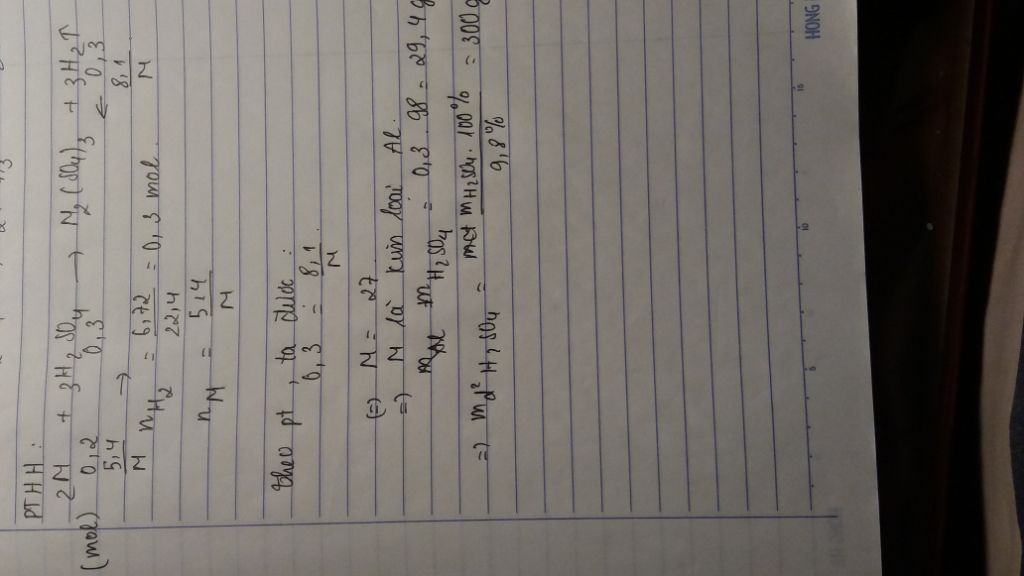 PTHH:
2M + 3H₂SO₄ → M₂(SO₄)₃ + 3H₂↑
(mol) 0,2 0,3 ← 0,3
5,4/M → 8,1/M
nH₂ = 6,72/22,4 = 0,3 mol.
nM = 5,4/M
theo pt, ta được:
0,3 = 8,1/M
(=) M = 27
=) M là kim loại Al.
mH₂SO₄ = 0,3 . 98 = 29,4g
=) md² H₂SO₄ = mct mH₂SO₄ . 100%/9,8% = 300g
5
10
15
HONG